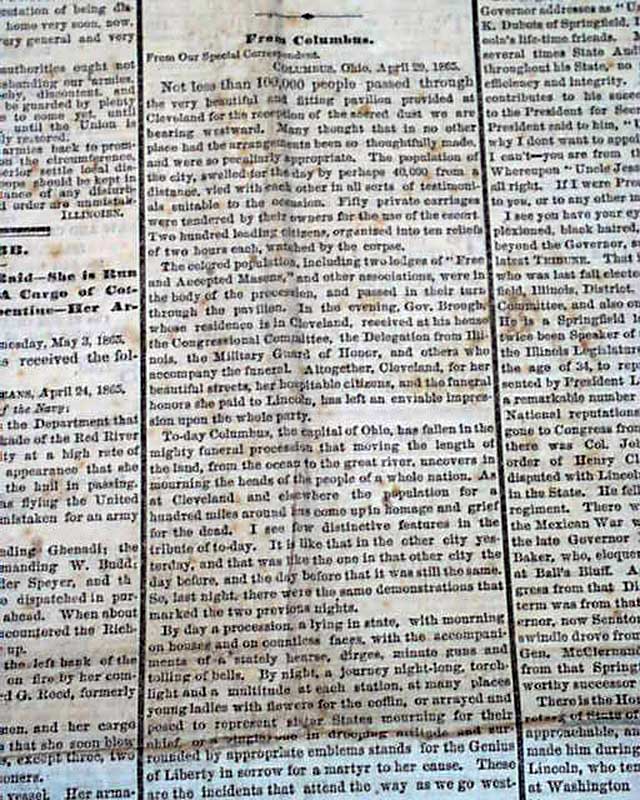 entation of being dis-
home very soon, now,
very general and very
authorities ought not
isbanding our armies,
be guarded by plenty
to come yet, until
until the Union is
ly restored.
armies back to prom-
the circumference,
erior settle local dis-
oops should be kept in
ance of any disturb-
d order are unmistak-
ILLINOISN.
Raid—She is Run
A Cargo of Cot-
pentine—Her Ar-
nesday, May 3, 1865.
s received the fol-
EANS, April 24, 1865.
of the Navy:
the Department that
kade of the Red River
ity at a high rate of
appearance that she
the hull in passing.
as flying the United
mistaken for an army
nding Ghenadi; the
manding W. Budd;
der Speyer, and th
e dispatched in pur-
ahead. When about
countered the Rich-
up.
the left bank of the
on fire by her com-
d G. Reed, formerly
men, and her cargo
s that she soon blew
s, except three, two
soners.
vessel. Her arma-
From Columbus.
From Our Special Correspondent.
COLUMBUS, Ohio, April 29, 1865.
Not less than 100,000 people passed through
the very beautiful and fitting pavilion provided at
Cleveland for the reception of the sacred dust we are
bearing westward. Many thought that in no other
place had the arrangements been so thoughtfully made,
and were so peculiarly appropriate. The population of
the city, swelled for the day by perhaps 40,000 from a
distance, vied with each other in all sorts of testimoni-
als suitable to the occasion. Fifty private carriages
were tendered by their owners for the use of the escort.
Two hundred leading citizens, organized into ten reliefs
of two hours each, watched by the corpse.
The colored population, including two lodges of "Free
and Accepted Masons," and other associations, were in
the body of the procession, and passed in their turn
through the pavilion. In the evening, Gov. Brough,
whose residence is in Cleveland, received at his house
the Congressional Committee, the Delegation from Illi-
nois, the Military Guard of Honor, and others who
accompany the funeral. Altogether, Cleveland, for her
beautiful streets, her hospitable citizens, and the funeral
honors she paid to Lincoln, has left an enviable impres-
sion upon the whole party.
To-day Columbus, the capital of Ohio, has fallen in the
mighty funeral procession that moving the length of
the land, from the ocean to the great river, uncovers in
mourning the heads of the people of a whole nation. As
at Cleveland and elsewhere the population for a
hundred miles around has come up in homage and grief
for the dead. I see few distinctive features in the
tribute of to-day. It is like that in the other city yes-
terday, and that was like the one in that other city the
day before, and the day before that it was still the same.
So, last night, there were the same demonstrations that
marked the two previous nights.
By day a procession, a lying in state, with mourning
on houses and on countless faces, with the accompani-
ments of a stately hearse, dirges, minute guns and
tolling of bells. By night, a journey night-long, torch-
light and a multitude at each station, at many places
young ladies with flowers for the coffin, or arrayed and
posed to represent sister States mourning for their
chief, or a single one in drooping attitude and sur-
rounded by appropriate emblems stands for the Genius
of Liberty in sorrow for a martyr to her cause. These
are the incidents that attend the way as we go west-
Governor addresses as "U
K. Dubois of Springfield,
coln's life-time friends.
several times State Aud
throughout his State, no
efficiency and integrity.
contributes to his succes
to the President for Secr
President said to him, "U
why I dont want to appoi
I can't—you are from th
Whereupon "Uncle Jess
all right. If I were Pres
to you, or to any other m
I see you have your ey
plexioned, black haired,
beyond the Governor,
latest TRIBUNE. That i
who was last fall electe
field, Illinois, District.
Committee, and also on
He is a Springfield l
twice been Speaker of
the Illinois Legislature
the age of 34, to repre
sented by President L
a remarkable number
National reputation
gone to Congress from
there was Col. Jo
order of Henry Cl
disputed with Lincol
in the State. He fell
regiment. There w
the Mexican War
the late Governor
Baker, who, eloque
at Ball's Bluff. A
gress from that Di
term was from that
ernor, now Senator
swindle drove from
Gen. McClernand
from that Spring
worthy successor
There is the Ho
retary of State or
approachable, an
made him during
Lincoln, who ten
at Washington